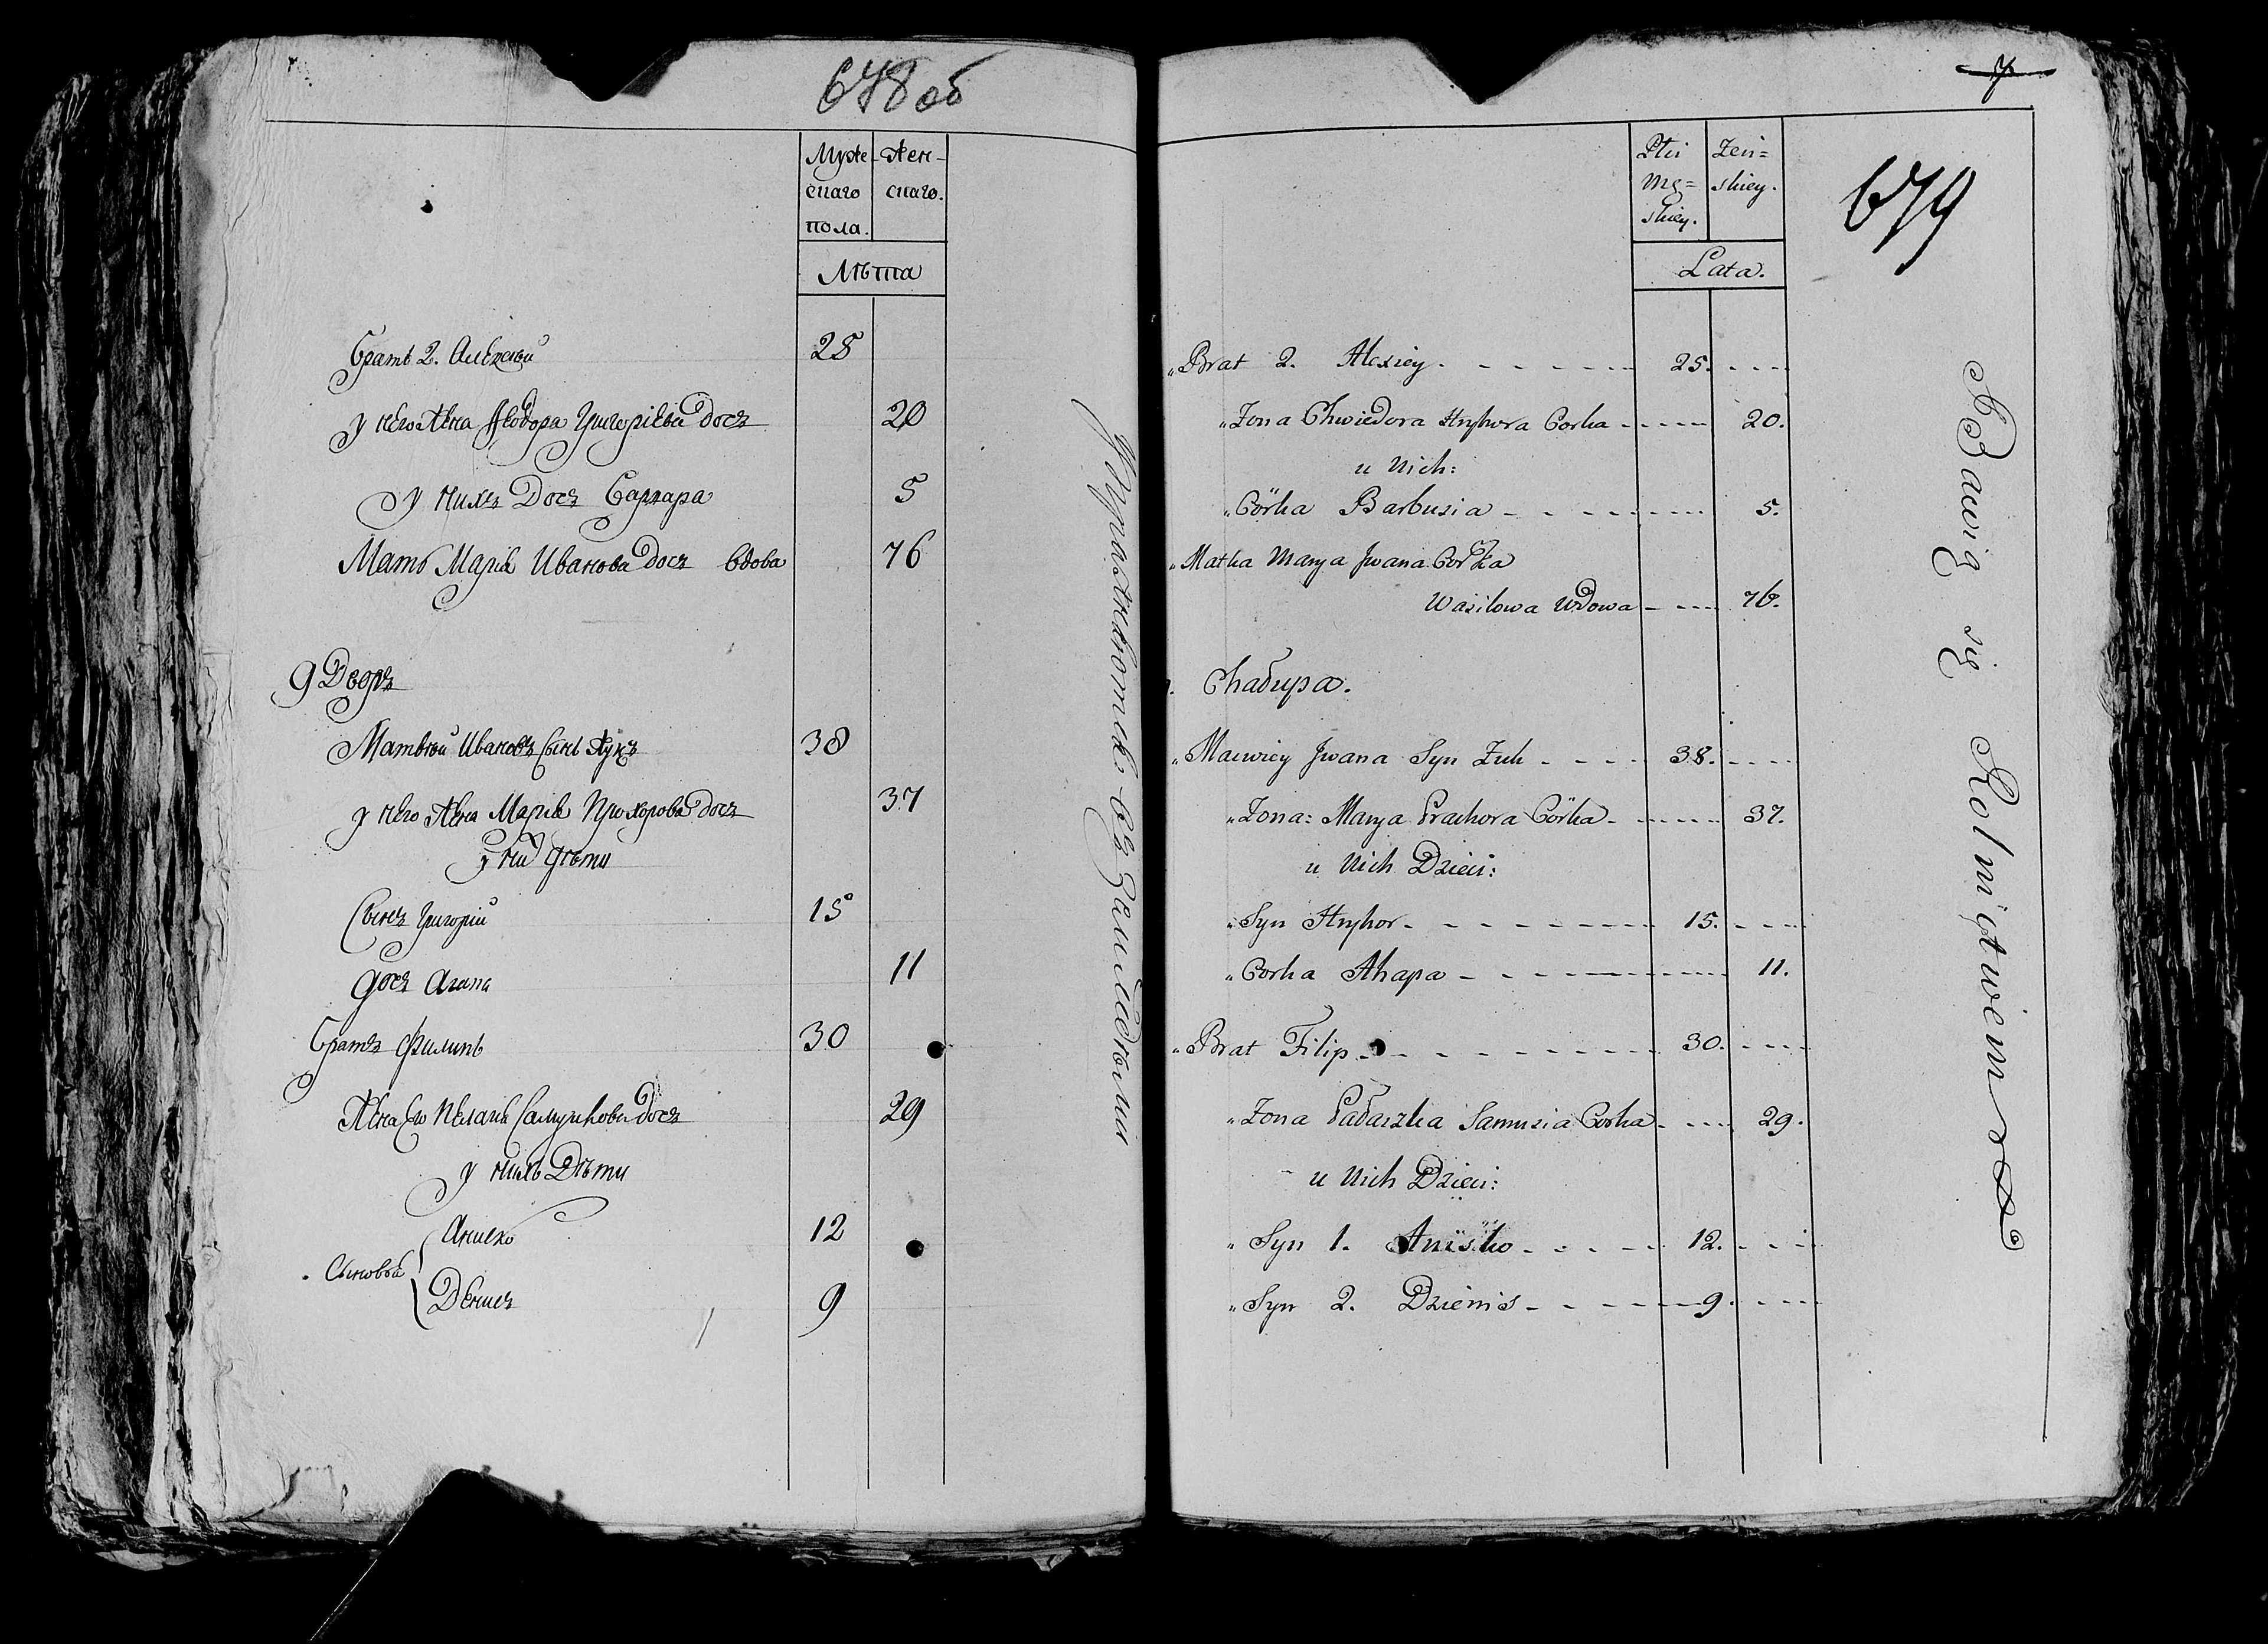 678 об
Муже- Жен-
скаго скаго.
пола.
Лѣта
Братъ 2. Алексѣй 25
у него Жена Ѳеодора Григорiева дочь 20
у нихъ Дочь Варвара 5
Мать Марiя Иванова дочь вдова 76
9 Дворъ
Матвѣй Ивановъ Сынъ Жукъ 38
у него Жена Марiя Прохорова дочь 37
у них дѣти
Сынъ Григорiй 15
дочь Агапа 11
Братъ Филипъ 30
Жена Его Пелагiя Самуйлова дочь 29
у нихъ Дѣти
Сыновья
Аниско 12
Денисъ 9
Упражняются въ Земледѣлiи
7
679
Płci Żeń=
Mę= skiey.
skiey.
Lata.
„Brat 2. Alexiey. 25.
„Żona Chwiedora Hryhora Corka 20.
u Nich:
„Córka Barbusia 5.
„Matka Marya Jwana Corka
Wasilowa Wdowa 76.
9. Chałupa.
„Maciwiey Jwana Syn Żuk 38.
„Żona: Marya Prachora Córka 37.
u Nich Dzieci:
„Syn Hryhor 15.
„Corka Ahapa 11.
„Brat Filip 30.
„Żona Pałaszka Samusia Corka 29.
u Nich Dzieci:
„Syn 1. Anisko 12.
„Syn 2. Dzienis 9.
Bawią się Rolnictwem